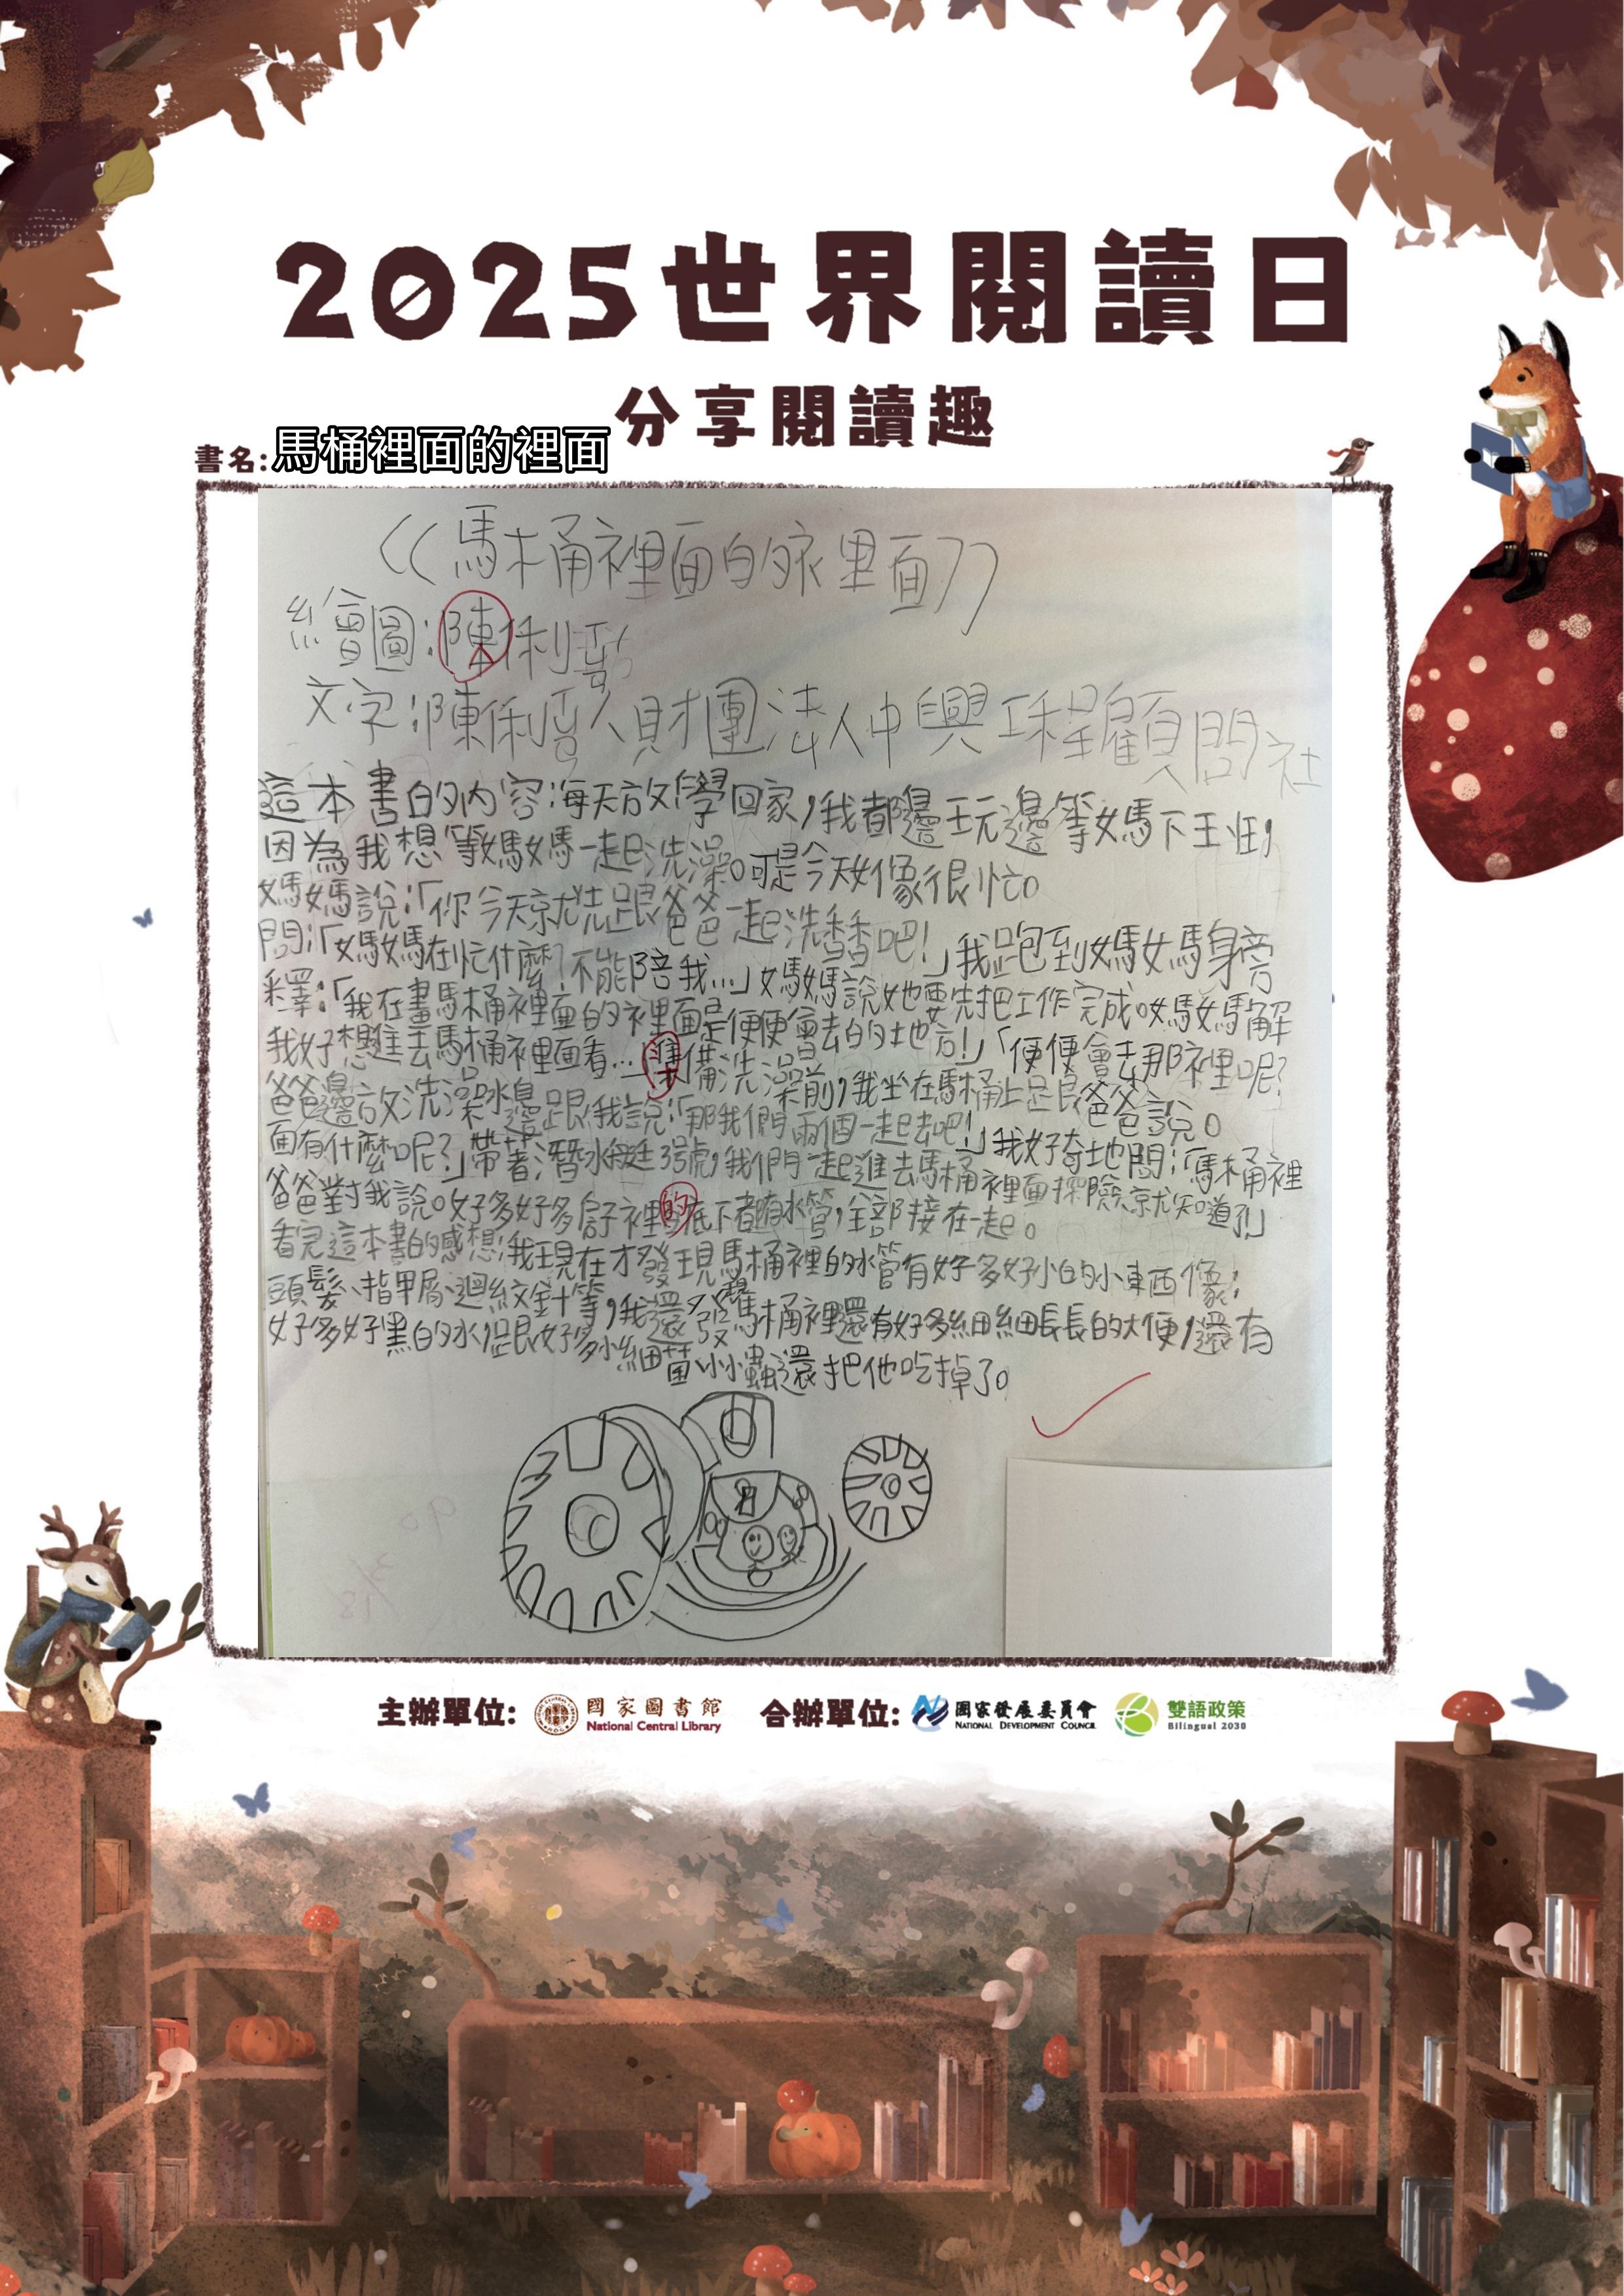 2025世界閱讀日
分享閱讀趣
書名:馬桶裡面的裡面
《馬桶裡面的裡面》
繪圖:陳俐
文字:陳俐 人財團法人中興工程顧問社
這本書的內容:每天放學回家,我都邊玩邊等媽下班,
因為我想等媽媽一起洗澡。可是今天好像很忙。
媽媽說:「你今天就先跟爸爸一起洗香香吧!」我跑到媽媽身旁
問:「媽媽在忙什麼?不能陪我...」媽媽說她要先把工作完成。媽媽解
釋:「我在畫馬桶裡面的裡面是便便會去的地方!」「便便會去那裡呢?
我好想進去馬桶裡面看...」準備洗澡前,我坐在馬桶上跟爸爸說。
爸爸邊放洗澡水邊跟我說:「那我們兩個一起去吧!」我好奇地問:「馬桶裡
面有什麼呢?」帶著潛水艇3號,我們一起進去馬桶裡面探險就知道了!」
爸爸對我說。好多好多房子裡的底下都有水管,全部接在一起。
看完這本書的感想:我現在才發現馬桶裡的水管有好多好小的小東西像:
頭髮、指甲屑、迴紋針等,我還發現馬桶裡還有好多細細長長的大便,還有
好多好黑的水,跟好多小細菌小小蟲還把他吃掉了。
主辦單位: 國家圖書館 National Central Library 合辦單位: 國家發展委員會 NATIONAL DEVELOPMENT COUNCIL 雙語政策 Bilingual 2030